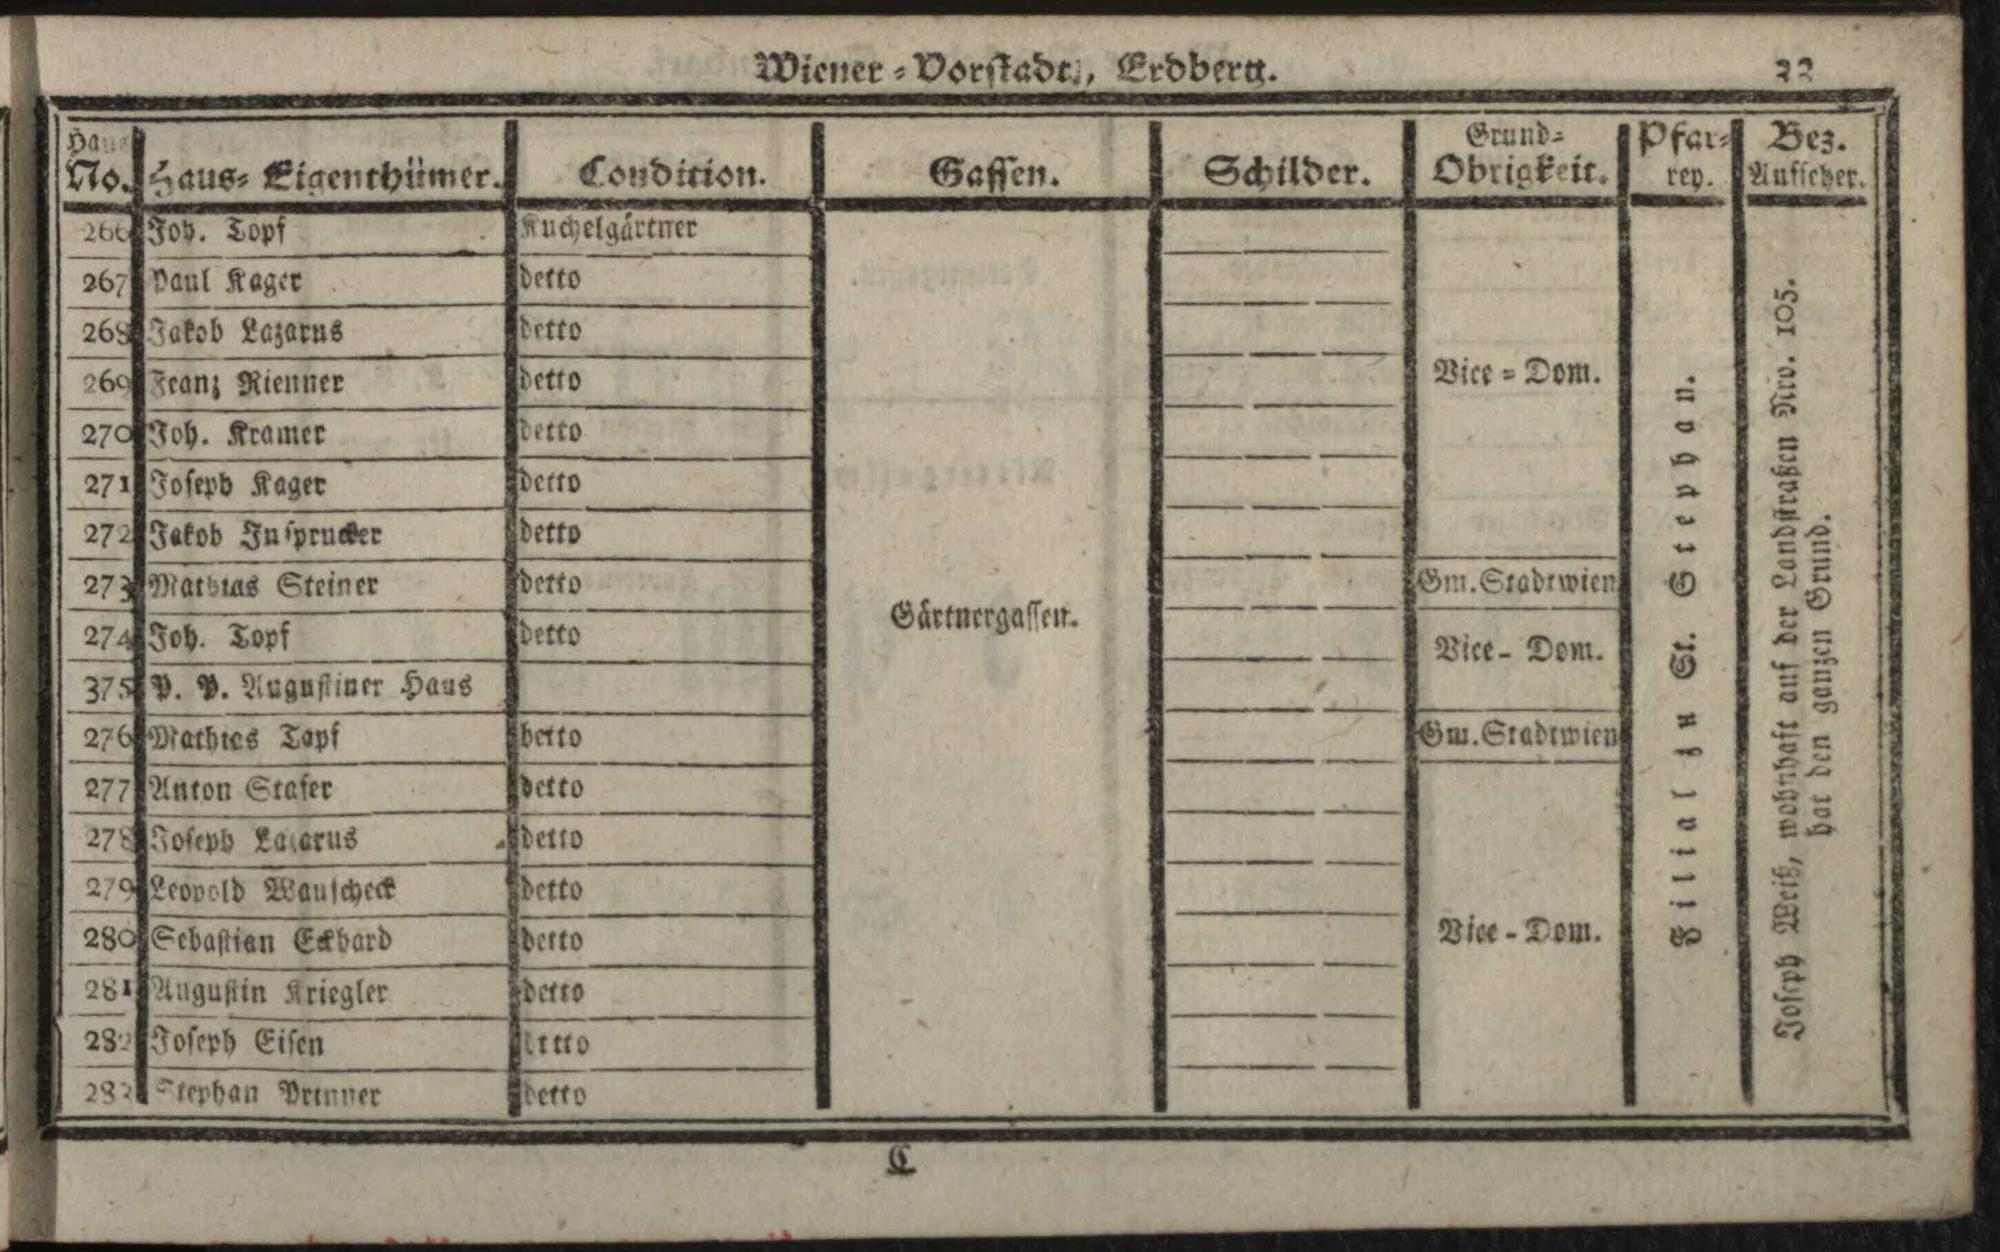 Wiener-Vorstadt, Erdberg.
Haus No. Haus-Eigenthümer. Condition. Gassen. Schilder. Grund-Obrigkeit. Pfarrey. Bez. Aufseher.
266 Joh. Topf Kuchelgärtner
267 Paul Kager detto
268 Jakob Lazarus detto
269 Franz Rienner detto Vice-Dom.
270 Joh. Kramer detto
271 Joseph Kager detto
272 Jakob Insprucker detto
273 Mathias Steiner detto Gm. Stadtwien
274 Joh. Topf detto Gärtnergassen. Vice-Dom.
375 P. P. Augustiner Haus
276 Mathies Topf detto Gm. Stadtwien
277 Anton Stafer detto
278 Joseph Lazarus detto
279 Leopold Wauscheck detto
280 Sebastian Eckhard detto Vice-Dom.
281 Augustin Kriegler detto
282 Joseph Eisen detto
283 Stephan detto
Filial zu St. Stephan.
Joseph Weiß, wohnhaft auf der Landstraßen Nro. 105.
hat den ganzen Grund.
C